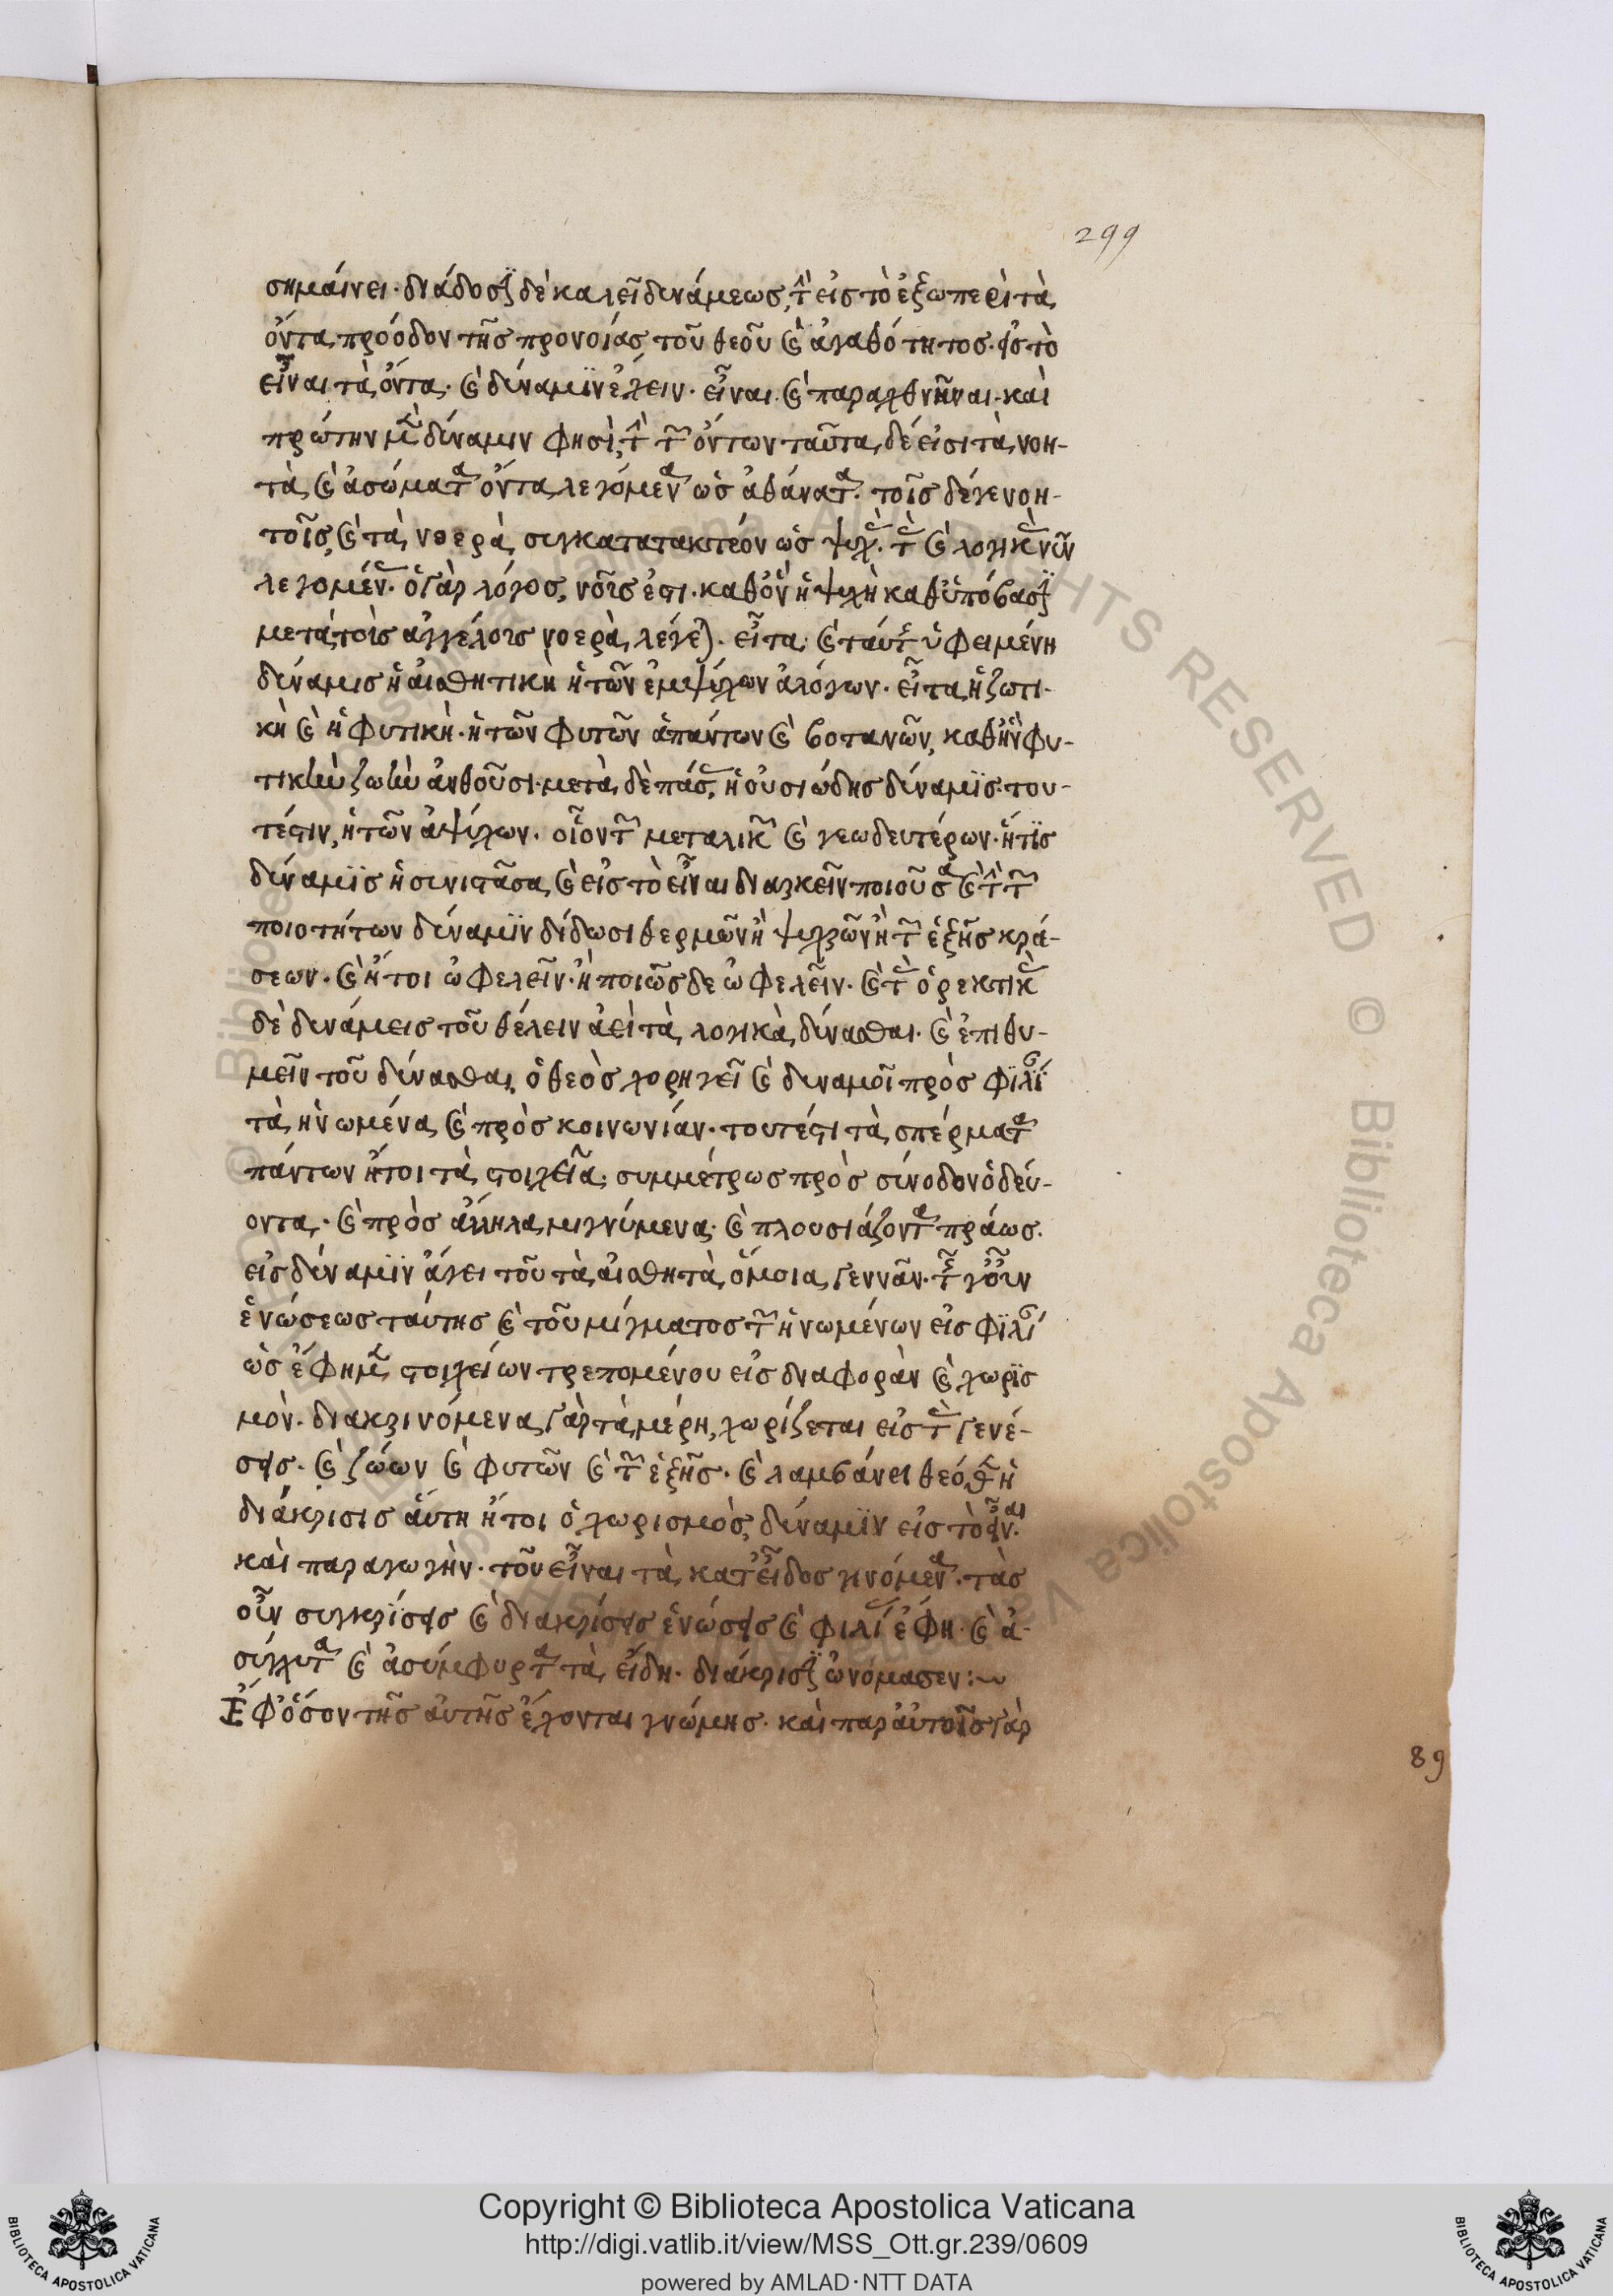 299
σημαίνει· διάδοσϊν δὲ καλεῖ δυνάμεως, τὴν εἰς τὸ ἔξω περὶ τὰ
ὄντα πρόοδον τῆς προνοίας τοῦ θεοῦ καὶ ἀγαθότητος· εἰς τὸ
εἶναι τὰ ὄντα· καὶ δύναμϊν ἔχειν· εἶναι καὶ παραχθῆναι· καὶ
πρώτην μὲν δύναμιν φησὶ, τὴν τῶν ὄντων ταῦτα δέ εἰσι τὰ νοη-
τὰ καὶ ἀσώματα ὄντα λεγόμενα ὡς ἀθάνατα· τοῖς δέ γε νοη-
τοῖς, καὶ τὰ νοερὰ συγκατατακτέον ὡς ψυχὰς τὰς καὶ λογικὰς νῦν
λεγομένας· ὁ γὰρ λόγος, νοῦς ἐστι· καθ' ὃν ἡ ψυχὴ καθ' ὑπόβασϊν
μετὰ τοὺς ἀγγέλους νοερὰ λέγεται· εἶτα καὶ ταύτης ὑφειμένη
δύναμις ἡ αἰσθητικὴ ἡ τῶν ἐμψύχων ἀλόγων· εἶτα ἡ ζωτι-
κὴ καὶ ἡ φυτικὴ· ἡ τῶν φυτῶν ἁπάντων καὶ βοτανῶν, καθ' ἣν φυ-
τικὴν ζωὴν ἀνθοῦσι· μετὰ δὲ πάσας, ἡ οὐσιώδης δύναμϊς· του-
τέστιν, ἡ τῶν ἀψύχων· οἷον τῶν μεταλικῶν καὶ γεωδεστέρων· ἥτϊς
δύναμϊς ἡ συνιστᾶσα καὶ εἰς τὸ εἶναι διαρκεῖν ποιοῦσα καὶ τὴν τῶν
ποιοτήτων δύναμϊν δίδωσι θερμῶν ἢ ψυχρῶν ἢ τῶν ἑξῆς κρά-
σεων· καὶ ἤτοι ὠφελεῖν· ἢ ποιῶς δὲ ὠφελεῖν· καὶ τὰς ὀρεκτικὰς
δὲ δυνάμεις τοῦ θέλειν ἀεὶ τὰ λογικὰ δύνασθαι· καὶ ἐπιθυ-
μεῖν τοῦ δύνασθαι, ὁ θεὸς χορηγεῖ καὶ δυναμοῖ πρὸς φϊλίαν
τὰ ἡνωμένα καὶ πρὸς κοινωνίαν· τουτέστι τὰ σπέρματα
πάντων ἤτοι τὰ στοιχεῖα· συμμέτρως πρὸς σύνοδον ὁδεύ-
οντα· καὶ πρὸς ἄλληλα μιγνύμενα· καὶ πλουσιάζοντα πράως·
εἰς δύναμϊν ἄγει τοῦ τὰ αἰσθητὰ ὅμοια γεννᾶν· τῆς γοῦν
ἑνώσεως ταύτης καὶ τοῦ μίγματος τῶν ἡνωμένων εἰς φϊλίαν
ὡς ἔφημεν στοιχείων τρεπομένου εἰς διαφορὰν καὶ χωρϊσ
μὸν· διακρινόμενα γὰρ τὰ μέρη, χωρίζεται εἰς τὰς γενέ-
σεις· καὶ ζώων καὶ φυτῶν καὶ τῶν ἑξῆς· καὶ λαμβάνει θεόθεν ἡ
διάκρισις αὕτη ἤτοι ὁ χωρισμὸς, δύναμϊν εἰς τὸ εἶναι·
καὶ παραγωγὴν· τοῦ εἶναι τὰ κατ' εἶδος γινόμενα· τὰς
οὖν συγκρίσεις καὶ διακρίσεις ἑνώσεις καὶ φιλίας ἔφη· καὶ ἀ-
σύγχυτα καὶ ἀσύμφυρτα τὰ εἴδη· διάκρισϊν ὠνόμασεν:~
Ἐφ' ὅσον τῆς αὐτῆς ἔχονται γνώμης· καὶ παρ' αὐτοῖς γὰρ
89
© Biblioteca Apostolica Vaticana
ALL RIGHTS RESERVED
Copyright © Biblioteca Apostolica Vaticana
http://digi.vatlib.it/view/MSS_Ott.gr.239/0609
powered by AMLAD·NTT DATA
BIBLIOTECA APOSTOLICA VATICANA
BIBLIOTECA APOSTOLICA VATICANA